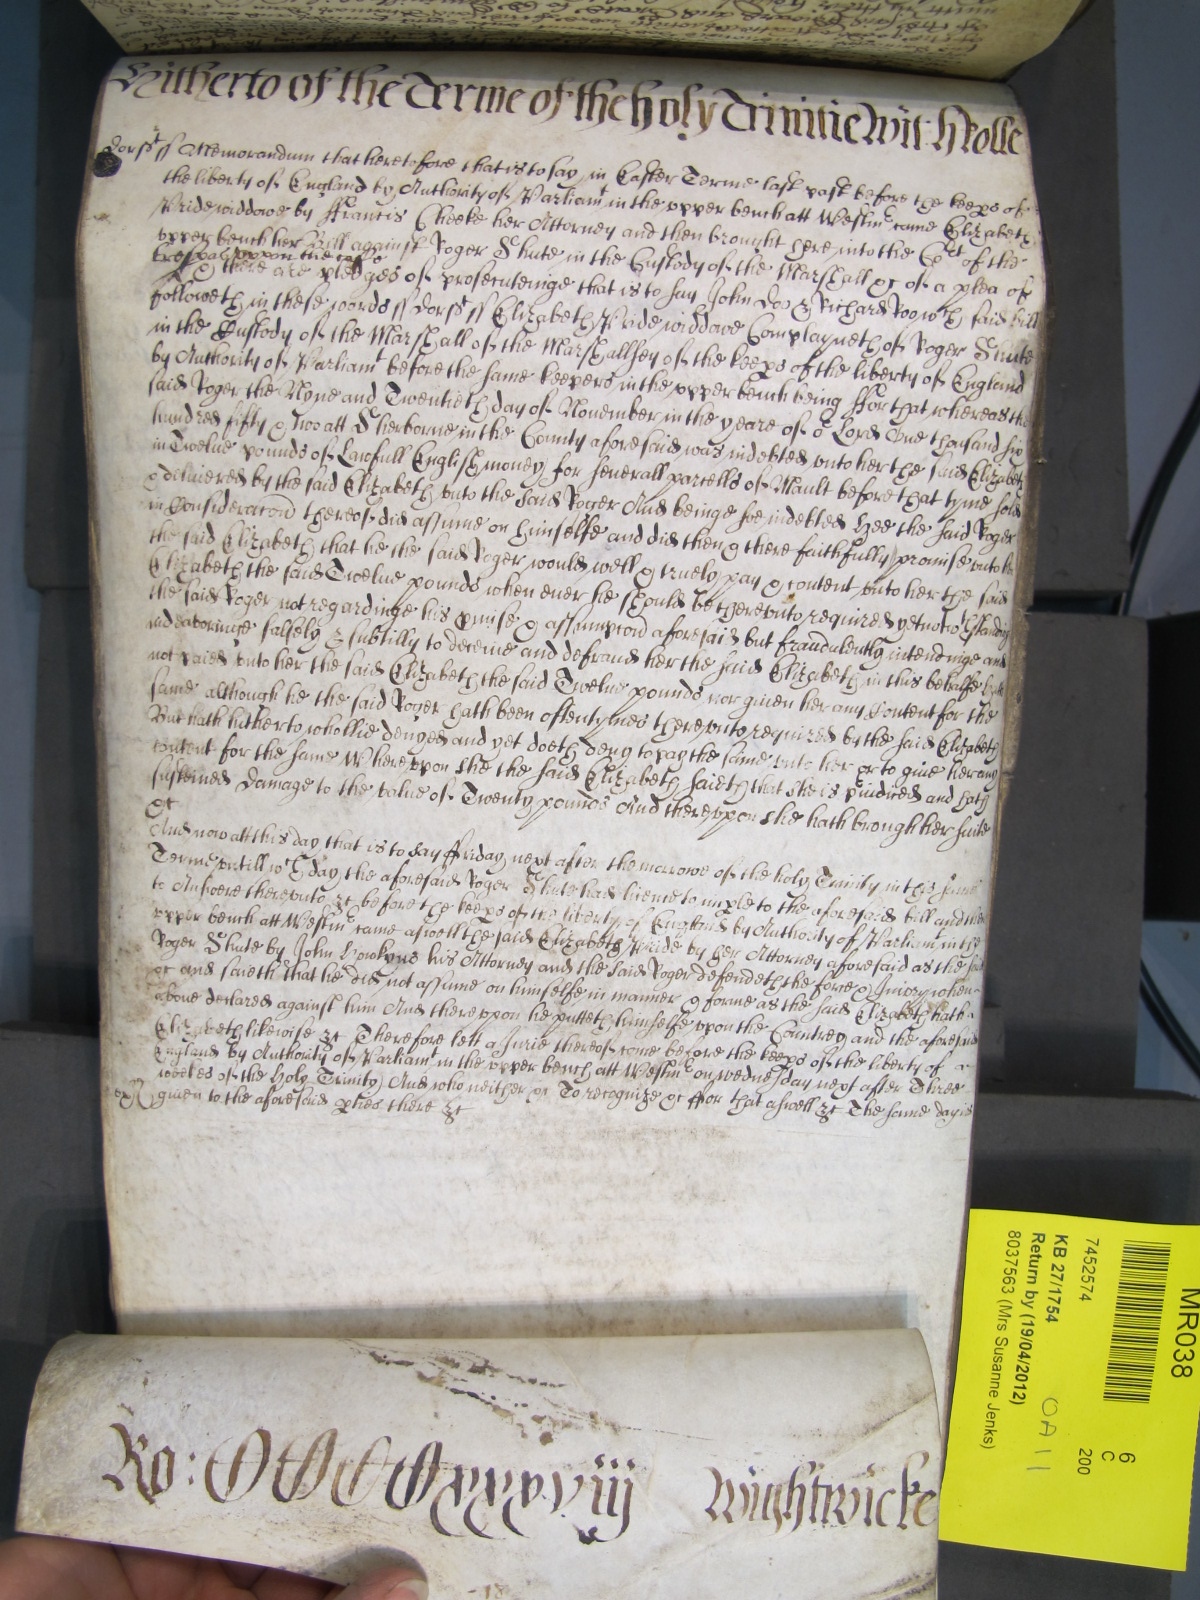 Hitherto of the Terme of the holy Trinitie Wit: Rolle
Dorsst ss Memorandum that heretofore that is to say in Easter Terme last past before the keeps of
the liberty of England by Authority of Parliamt in the upper bench att Westm came Elizabeth
Pride widdowe by Francis Cheeke her Attorney and then brought here into the Cort of the
upper bench her Bill against Roger Shute in the Custody of the Marshall &c of a plea of
trespas uppon the case
& there are pledges of prosecuteinge that is to say John Doo & Richard Roo wch said bill
followeth in these words ss Dorsst ss Elizabeth Pride widdowe Complayneth of Roger Shute
in the Custody of the Marshall of the Marshallsey of the keeps of the liberty of England
by Authority of Parliamt before the same keepers in the upper bench being ffor that whereas the
said Roger the Nyne and Twentieth day of November in the yeare of or Lord One thousand six
hundred fifty & two att Sherborne in the County aforesaid was indebted unto her the said Elizabeth
in Twelve pounds of Lawfull English money for severall parcells of Mault before that tyme sold
& delivered by the said Elizabeth unto the said Roger And beinge soe indebted Hee the said Roger
in Consideracon thereof did assume on himselfe and did then & there faithfully promise unto her
the said Elizabeth that he the said Roger would well & truely pay & content unto her the said
Elizabeth the said Twelve pounds when ever he should be thereunto required yet notwthstanding
the said Roger not regardinge his pmise & assumpcon aforesaid but fraudulently intendinge and
indeavoringe falsely & subtilly to deceive and defraud her the said Elizabeth in this behalfe hath
not paied unto her the said Elizabeth the said Twelve pounds nor given her any Content for the
same although he the said Roger hath been oftentymes thereunto required by the said Elizabeth
But hath hitherto whollie denyed and yet doeth deny to pay the same unto her or to give her any
content for the same Whereuppon she the said Elizabeth saieth that she is pjudiced and hath
susteined Damage to the value of Twenty pounds And thereuppon she hath brought her suite
&c
And now att this day that is to say Friday next after the morrowe of the holy Trinity in this same
Terme untill wch day the aforesaid Roger Shute had licence to imple to the aforesaid bill and then
to Answere thereunto &c before the keeps of the liberty of England by Authority of Parliamt in the
upper bench att Westm came aswell the said Elizabeth Pride by her Attorney aforesaid as the said
Roger Shute by John his Attorney and the said Roger defendeth the force & Iniury when
&c and saieth that he did not assume on himselfe in manner & forme as the said Elizabeth hath
above declared against him And thereuppon he putteth himselfe uppon the Countrey and the aforesaid
Elizabeth likewise &c Therefore lett a Jurie thereof come before the keeps of the liberty of
England by Authority of Parliamt in the upper bench att Westm on wednesday next after Three
weekes of the Holy Trinity And who neither &c To recognize &c ffor that aswell &c The same day is
given to the aforesaid pties there &c
Ro: CCCCxxxxviij Wightwicke
MR038
6
C
200
7452574
KB 27/1754
Return by (19/04/2012)
8037563 (Mrs Susanne Jenks)